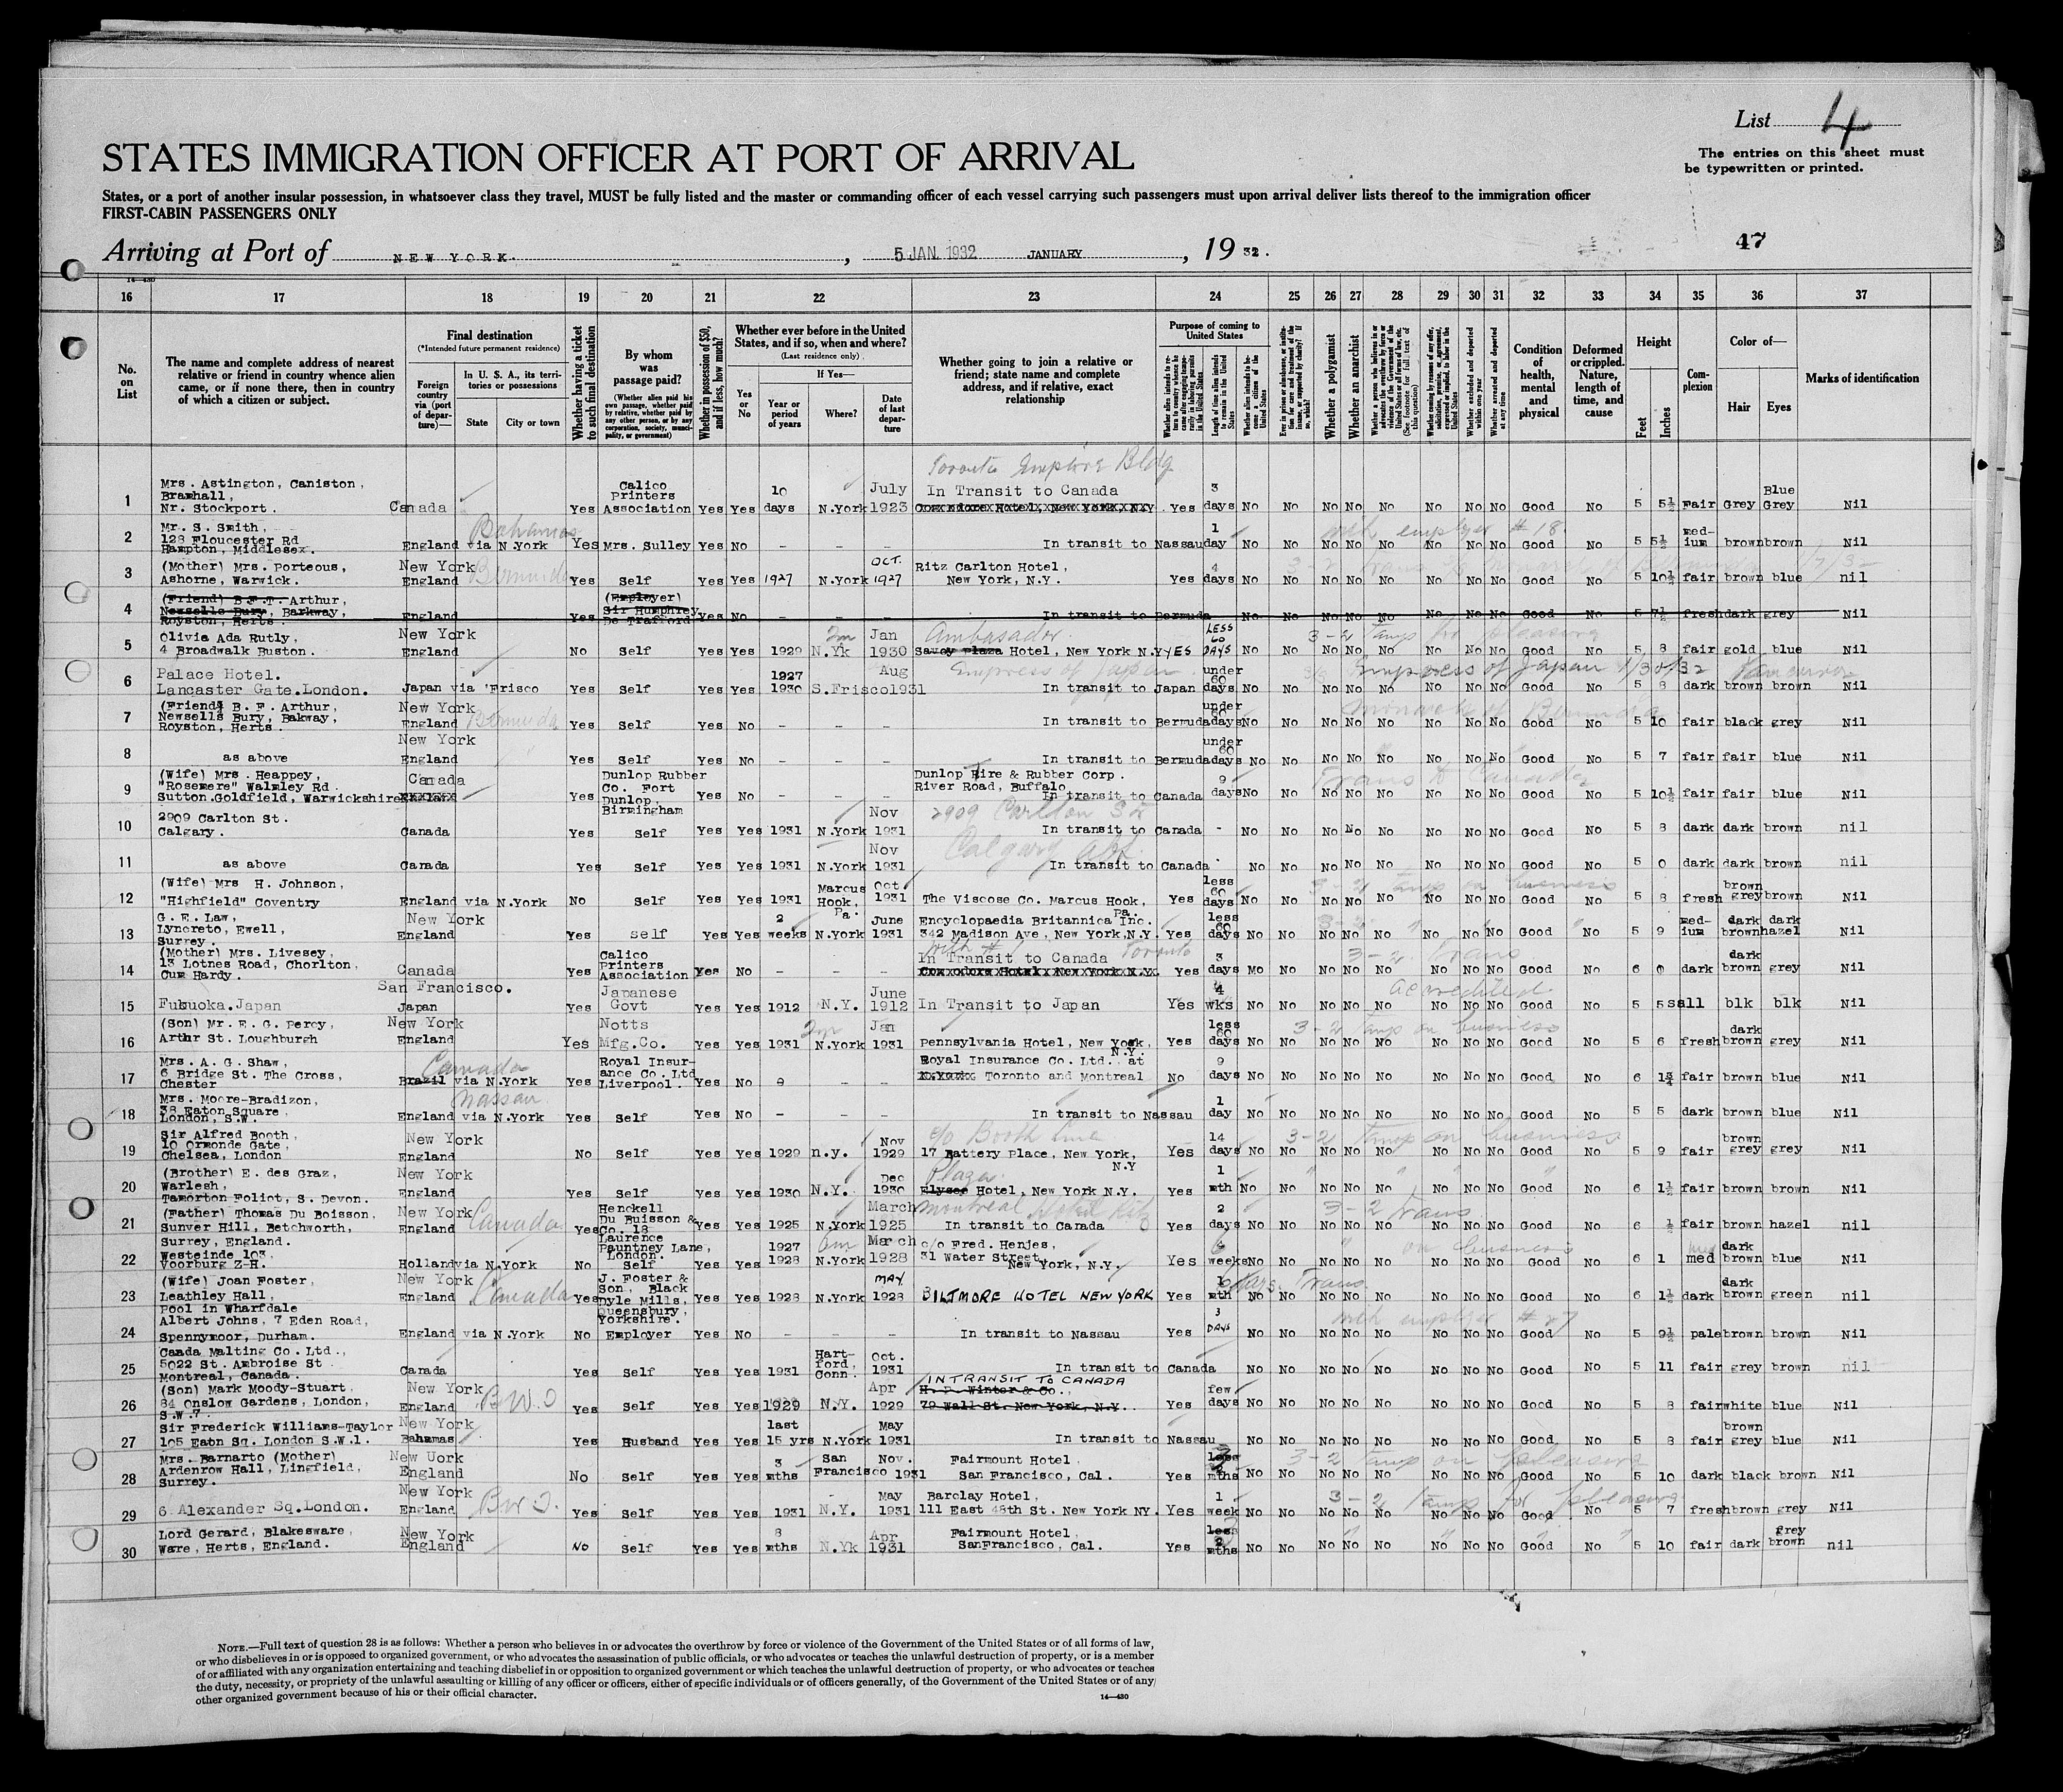 List 4
STATES IMMIGRATION OFFICER AT PORT OF ARRIVAL
The entries on this sheet must
be typewritten or printed.
States, or a port of another insular possession, in whatsoever class they travel, MUST be fully listed and the master or commanding officer of each vessel carrying such passengers must upon arrival deliver lists thereof to the immigration officer
FIRST-CABIN PASSENGERS ONLY
47
Arriving at Port of NEW YORK. , 5 JAN. 1932 JANUARY , 19 32.
14—430
16 17 18 19 20 21 22 23 24 25 26 27 28 29 30 31 32 33 34 35 36 37
No. on List
The name and complete address of nearest relative or friend in country whence alien came, or if none there, then in country of which a citizen or subject.
Final destination
(*Intended future permanent residence)
Foreign country via (port of departure)—
In U. S. A., its territories or possessions
State City or town
Whether having a ticket to such final destination
By whom was passage paid?
(Whether alien paid his own passage, whether paid by relative, whether paid by any other person, or by any corporation, society, municipality, or government)
Whether in possession of $50, and if less, how much?
Whether ever before in the United States, and if so, when and where?
(Last residence only)
Yes or No
If Yes—
Year or period of years Where? Date of last departure
Whether going to join a relative or friend; state name and complete address, and if relative, exact relationship
Purpose of coming to United States
Length of time alien intends to remain in the United States
Whether alien intends to become a citizen of the United States
Whether a polygamist
Whether an anarchist
(See footnote for full text of this question)
Whether excluded and deported within one year
Whether arrested and deported at any time
Condition of health, mental and physical
Deformed or crippled. Nature, length of time, and cause
Height
Feet Inches
Complexion
Color of—
Hair Eyes
Marks of identification
Toronto Empire Bldg
1 Mrs. Astington, Caniston, Bramhall, Nr. Stockport. Canada Yes Calico Printers Association Yes Yes 10 days N.York July 1923 In Transit to Canada Yes 3 days No No No No No No No No Good No 5 5½ Fair Grey Blue Grey Nil
2 Mr. S. Smith, 128 Floucester Rd Hampton, Middlesex. England via N.York Bahamas Yes Mrs. Sulley Yes No - - - In transit to Nassau 1 day No No No No No No No No Good No 5 5½ med-ium brown brown Nil
with employer # 18
3 (Mother) Mrs. Porteous, Ashorne, Warwick. New York England Bermuda Yes Self Yes Yes 1927 N.York OCT. 1927 Ritz Carlton Hotel, New York, N.Y. Yes 4 days No No No No No No No No Good No 5 10½ fair brown blue nil
4 (Friend) B.F.T. Arthur, Newsells Bury, Barkway, Royston, Herts. England Yes (Employer) Sir Humphrey De Trafford Yes No - - - In transit to Bermuda No No No No No No No No Good No 5 7½ fresh dark grey Nil
5 Olivia Ada Rutly, 4 Broadwalk Buston. New York England No Self Yes Yes 1929 N.Yk Jan 1930 Ambasador Savoy Plaza Hotel, New York N.Y YES LESS 60 DAYS No No No No No No No No Good No 5 8 fair gold blue Nil
3-2 Temp for pleasure
6 Palace Hotel. Lancaster Gate.London. Japan via 'Frisco Yes Self Yes Yes 1927 1930 S.Frisco Aug 1931 Empress of Japan In transit to Japan under 60 days No No No No No No No No Good No 5 8 dark brown brown Nil
Empress of Japan 1/30/32 Vancouver
7 (Friend) B. F. Arthur, Newsells Bury, Bakway, Royston, Herts. New York England Bermuda Yes Self Yes No - - - In transit to Bermuda under 60 days No No No No No No No No Good No 5 10 fair black grey Nil
Monarch of Bermuda
8 as above New York England Yes Self Yes No - - - In transit to Bermuda under 60 days No No No No No No No No Good No 5 7 fair fair blue Nil
9 (Wife) Mrs. Heappey, "Rosemere" Walmley Rd. Sutton.Goldfield, Warwickshire Canada Yes Dunlop Rubber Co. Fort Dunlop, Birmingham Yes No - - - Dunlop Tire & Rubber Corp. River Road, Buffalo In transit to Canada 9 days No No No No No No No No Good No 5 10½ fair fair blue Nil
Trans to Canada
10 2909 Carlton St. Calgary. Canada Yes Self Yes Yes 1931 N.York Nov 1931 2909 Carlton St In transit to Canada - No No No No No No No No Good No 5 8 dark dark brown nil
11 as above Canada Yes Self Yes Yes 1931 N.York Nov 1931 Calgary Alt. In transit to Canada No No No No No No No No Good No 5 0 dark dark brown nil
12 (Wife) Mrs H. Johnson, "Highfield" Coventry England via N.York No Self Yes Yes 1931 Marcus Hook, Pa. Oct. 1931 The Viscose Co. Marcus Hook, Pa. Yes less 60 days No No No No No No No No Good No 5 8 fresh brown grey brown Nil
3-2 temp on business
13 G. E. Law, Lyncreto, Ewell, Surrey. New York England Yes Self Yes Yes 2 weeks N.York June 1931 Encyclopaedia Britannica Inc. 342 Madison Ave, New York, N.Y. Yes less 60 days No No No No No No No No Good No 5 9 med-ium dark brown dark hazel Nil
14 (Mother) Mrs. Livesey, 13 Lotnes Road, Chorlton, Cum Hardy. Canada Yes Calico Printers Association Yes No - - - With # 1 Toronto In Transit to Canada Yes 3 days Mo No No No No No No No Good No 6 0 dark dark brown grey Nil
3-2 Trans
15 Fukuoka.Japan San Francisco. Japan Yes Japanese Govt Yes Yes 1912 N.Y. June 1912 In Transit to Japan Yes 4 wks No No No No No No No No Good No 5 5 sall blk blk Nil
Accredited
16 (Son) Mr. E. G. Percy, Arthr St. Loughburgh New York England Yes Notts Mfg.Co. Yes Yes 1931 N.York Jan 1931 Pennsylvania Hotel, New York, N.Y. Yes less 60 days No No No No No No No No Good No 5 6 fresh dark brown grey Nil
3-2 Temp on business
17 Mrs. A. G. Shaw, 6 Bridge St. The Cross, Chester Canada Brazil via N.York Yes Royal Insur-ance Co. Ltd Liverpool. Yes No - - Royal Insurance Co. Ltd. at Toronto and Montreal No 9 days No No No No No No No No Good No 6 1¾ fair brown blue Nil
18 Mrs. Moore-Bradizon, 38 Eaton Square, London, S.W. Nassau England via N.York Yes Self Yes No - - - In transit to Nassau 1 day No No No No No No No No Good No 5 5 dark brown blue Nil
19 Sir Alfred Booth, 10 Ormonde Gate, Chelsea, London New York England No Self Yes Yes 1929 n.y. Nov 1929 c/o Booth Line 17 Battery Place, New York, N.Y Yes 14 days No No No No No No No No Good No 5 9 fair brown grey grey Nil
3-2 temp on business
20 (Brother) E. des Graz, Warlesh, Tamorton Foliot, S. Devon. New York England Yes Self Yes Yes 1930 N.Y. Dec 1930 Plaza Elysee Hotel, New York N.Y. Yes 1 mth No No No No No No No No Good No 6 1½ fair brown brown Nil
21 (Father) Thomas Du Boisson, Sunver Hill, Betchworth, Surrey, England. New York England Canada Yes Henckell Du Buisson & Co. 18 Laurence Pauntney Lane, London. Yes Yes 1925 N.York March 1925 Montreal Hotel Ritz In transit to Canada Yes 2 days No No No No No No No No Good No 6 ½ fair brown hazel nil
3-2 Trans
22 Westeinde 103, Voorburg Z-H. Holland via N.York No Self Yes Yes 1927 1928 N.York March 1928 c/o Fred. Henjes, 31 Water Street, New York, N.Y. Yes weeks No No No No No No No No Good No 6 1 med dark brown blue Nil
on business
23 (Wife) Joan Foster, Leathley Hall, Pool in Wharfdale New York England Yes J. Foster & Son, Black Dyle Mills, Queensbury, Yorkshire. Yes Yes 1928 N.York MAY 1928 BILTMORE HOTEL NEW YORK Yes 1 mth No No No No No No No No Good No 6 1½ dark dark brown green nil
24 Albert Johns, 7 Eden Road, Spennymoor, Durham. England via N.York No Employer Yes No - - - In transit to Nassau Yes 3 DAYS No No No No No No No No Good No 5 9½ pale brown brown Nil
with employer # 27
25 Caada Malting Co. Ltd., 5022 St. Ambroise St. Montreal, Canada. Canada Yes Self Yes Yes 1931 Hart-ford, Conn. Oct. 1931 In transit to Canada No No No No No No No No Good No 5 11 fair grey brown nil
26 (Son) Mark Moody-Stuart, 84 Onslow Gardens, London, S.W.7. New York England B.W.I Yes Self Yes Yes 1929 N.Y. Apr 1929 IN TRANSIT TO CANADA H. D. Winter & Co., 79 Wall St. New York, N.Y. Yes few days No No No No No No No No Good No 5 8 fair white blue Nil
27 Sir Frederick Williams-Taylor 105 Eatn Sq. London S.W.1. New York Bahamas Yes Husband Yes Yes last 15 yrs N.York May 1931 In transit to Nassau No No No No No No No No Good No 5 8 fair brown grey blue Nil
28 Mrs. Barnarto (Mother) Ardenrow Hall, Lingfield, Surrey. New Uork England No Self Yes Yes 3 mths San Francisco Nov. 1931 Fairmount Hotel, San Francisco, Cal. Yes mths No No No No No No No No Good No 5 10 dark black brown Nil
3-2 temp on pleasure
29 6 Alexander Sq.London. New York England B W I. Yes Self Yes Yes 1931 N.Y. May 1931 Barclay Hotel, 111 East 48th St. New York NY. Yes 1 week No No No No No No No No Good No 5 7 fresh brown grey Nil
3-2 temp for pleasure
30 Lord Gerard, Blakesware, Ware, Herts, England. New York England No Self Yes Yes 8 mths N.Yk Apr 1931 Fairmount Hotel, SanFrancisco, Cal. Yes mths No No No No No No No No Good No 5 10 fair dark grey brown nil
NOTE.—Full text of question 28 is as follows: Whether a person who believes in or advocates the overthrow by force or violence of the Government of the United States or of all forms of law,
or who disbelieves in or is opposed to organized government, or who advocates the assassination of public officials, or who advocates or teaches the unlawful destruction of property, or is a member
of or affiliated with any organization entertaining and teaching disbelief in or opposition to organized government or which teaches the unlawful destruction of property, or who advocates or teaches
the duty, necessity, or propriety of the unlawful assaulting or killing of any officer or officers, either of specific individuals or of officers generally, of the Government of the United States or of any
other organized government because of his or their official character.
14—430